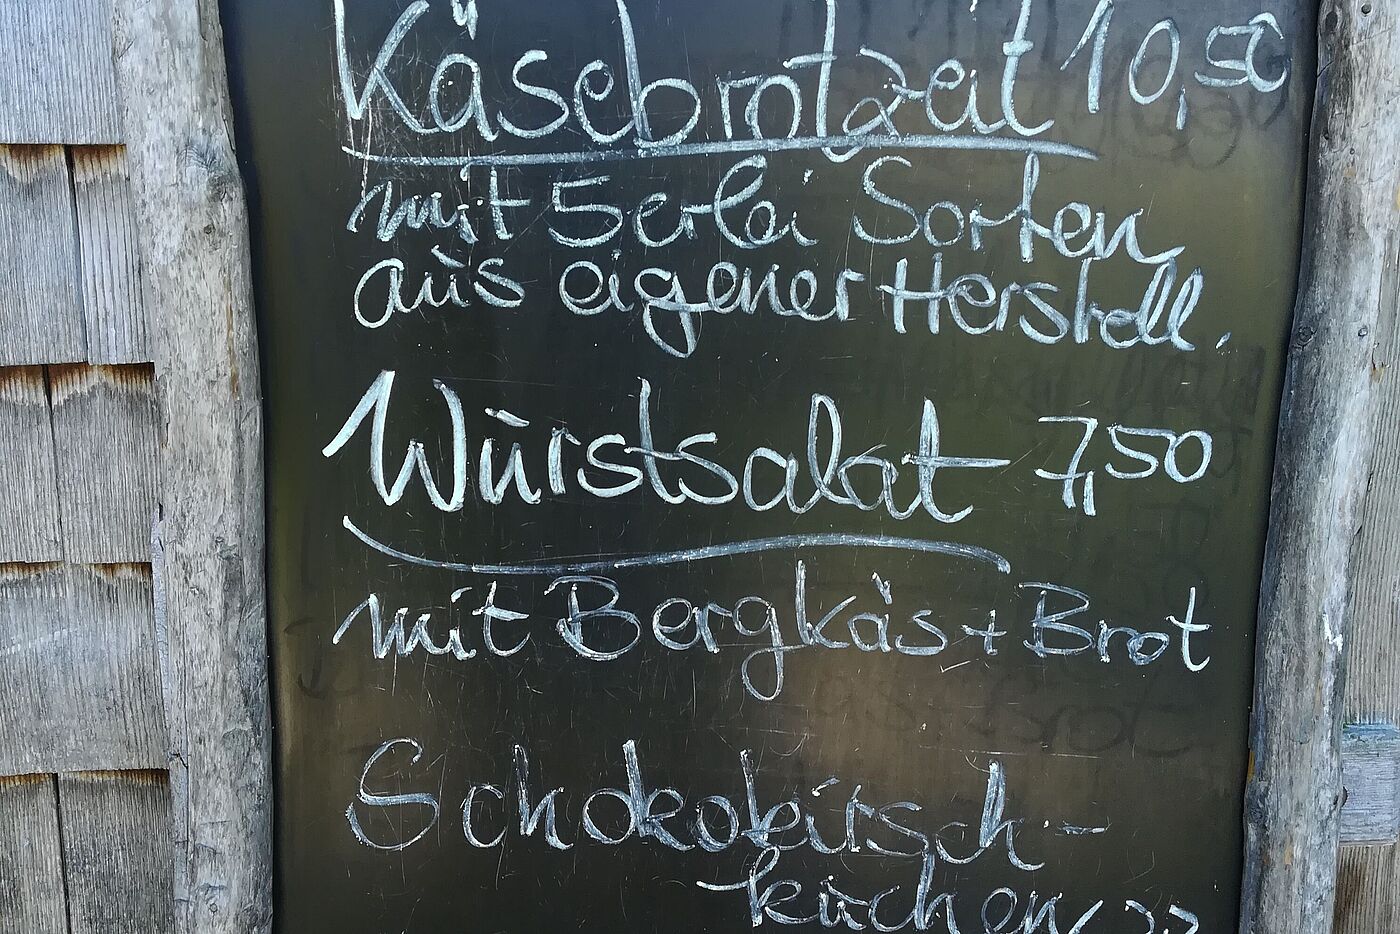 Käsebrotzeit 10,50
mit 5erlei Sorten
aus eigener Herstell.
Wurstsalat 7,50
mit Bergkäs + Brot
Schokokirsch-
kuchen